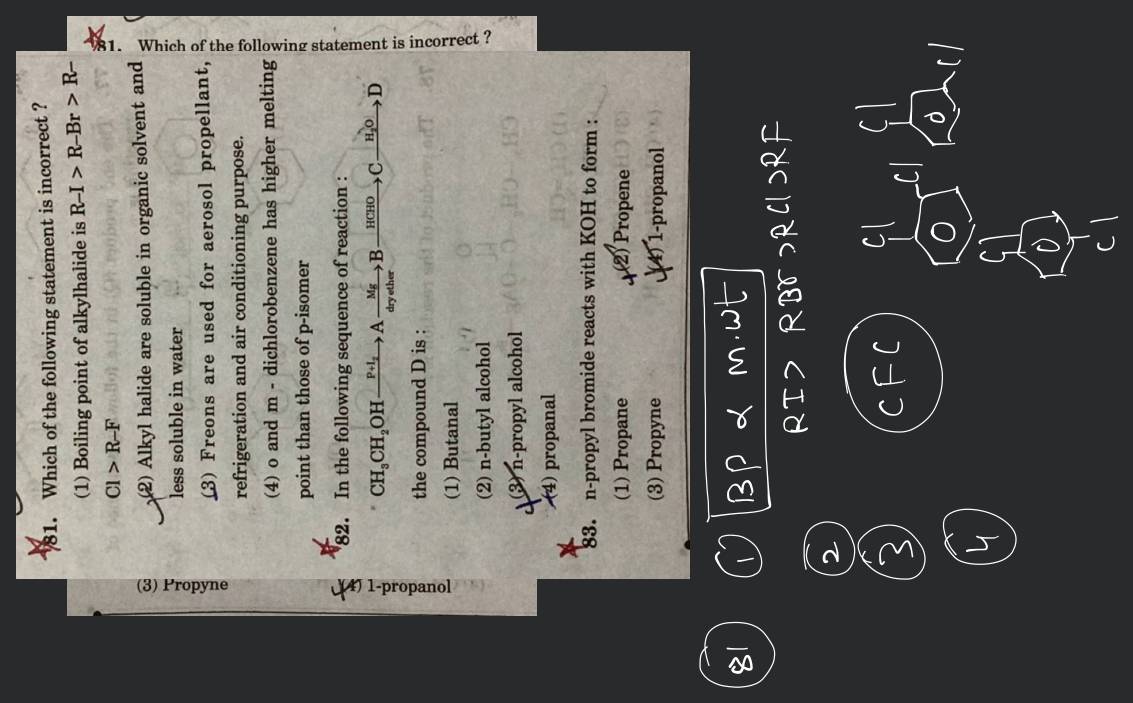 81. Which of the following statement is incorrect ?
81. Which of the following statement is incorrect ?
(1) Boiling point of alkylhalide is R–I > R–Br > R–
Cl > R–F
(2) Alkyl halide are soluble in organic solvent and
less soluble in water
(3) Freons are used for aerosol propellant,
refrigeration and air conditioning purpose.
(4) o and m - dichlorobenzene has higher melting
point than those of p-isomer
82. In the following sequence of reaction :
CH₃CH₂OH —P+I₂→ A —Mg dry ether→ B —HCHO→ C —H₂O→ D
the compound D is :
(1) Butanal
(2) n-butyl alcohol
(3) n-propyl alcohol
(4) propanal
83. n-propyl bromide reacts with KOH to form :
(1) Propane (2) Propene
(3) Propyne (4) 1-propanol
(3) Propyne (4) 1-propanol
81 1 BP α m.wt
RI > RBr > RCl > RF
2
3 CFC
4 Cl Cl Cl Cl Cl Cl